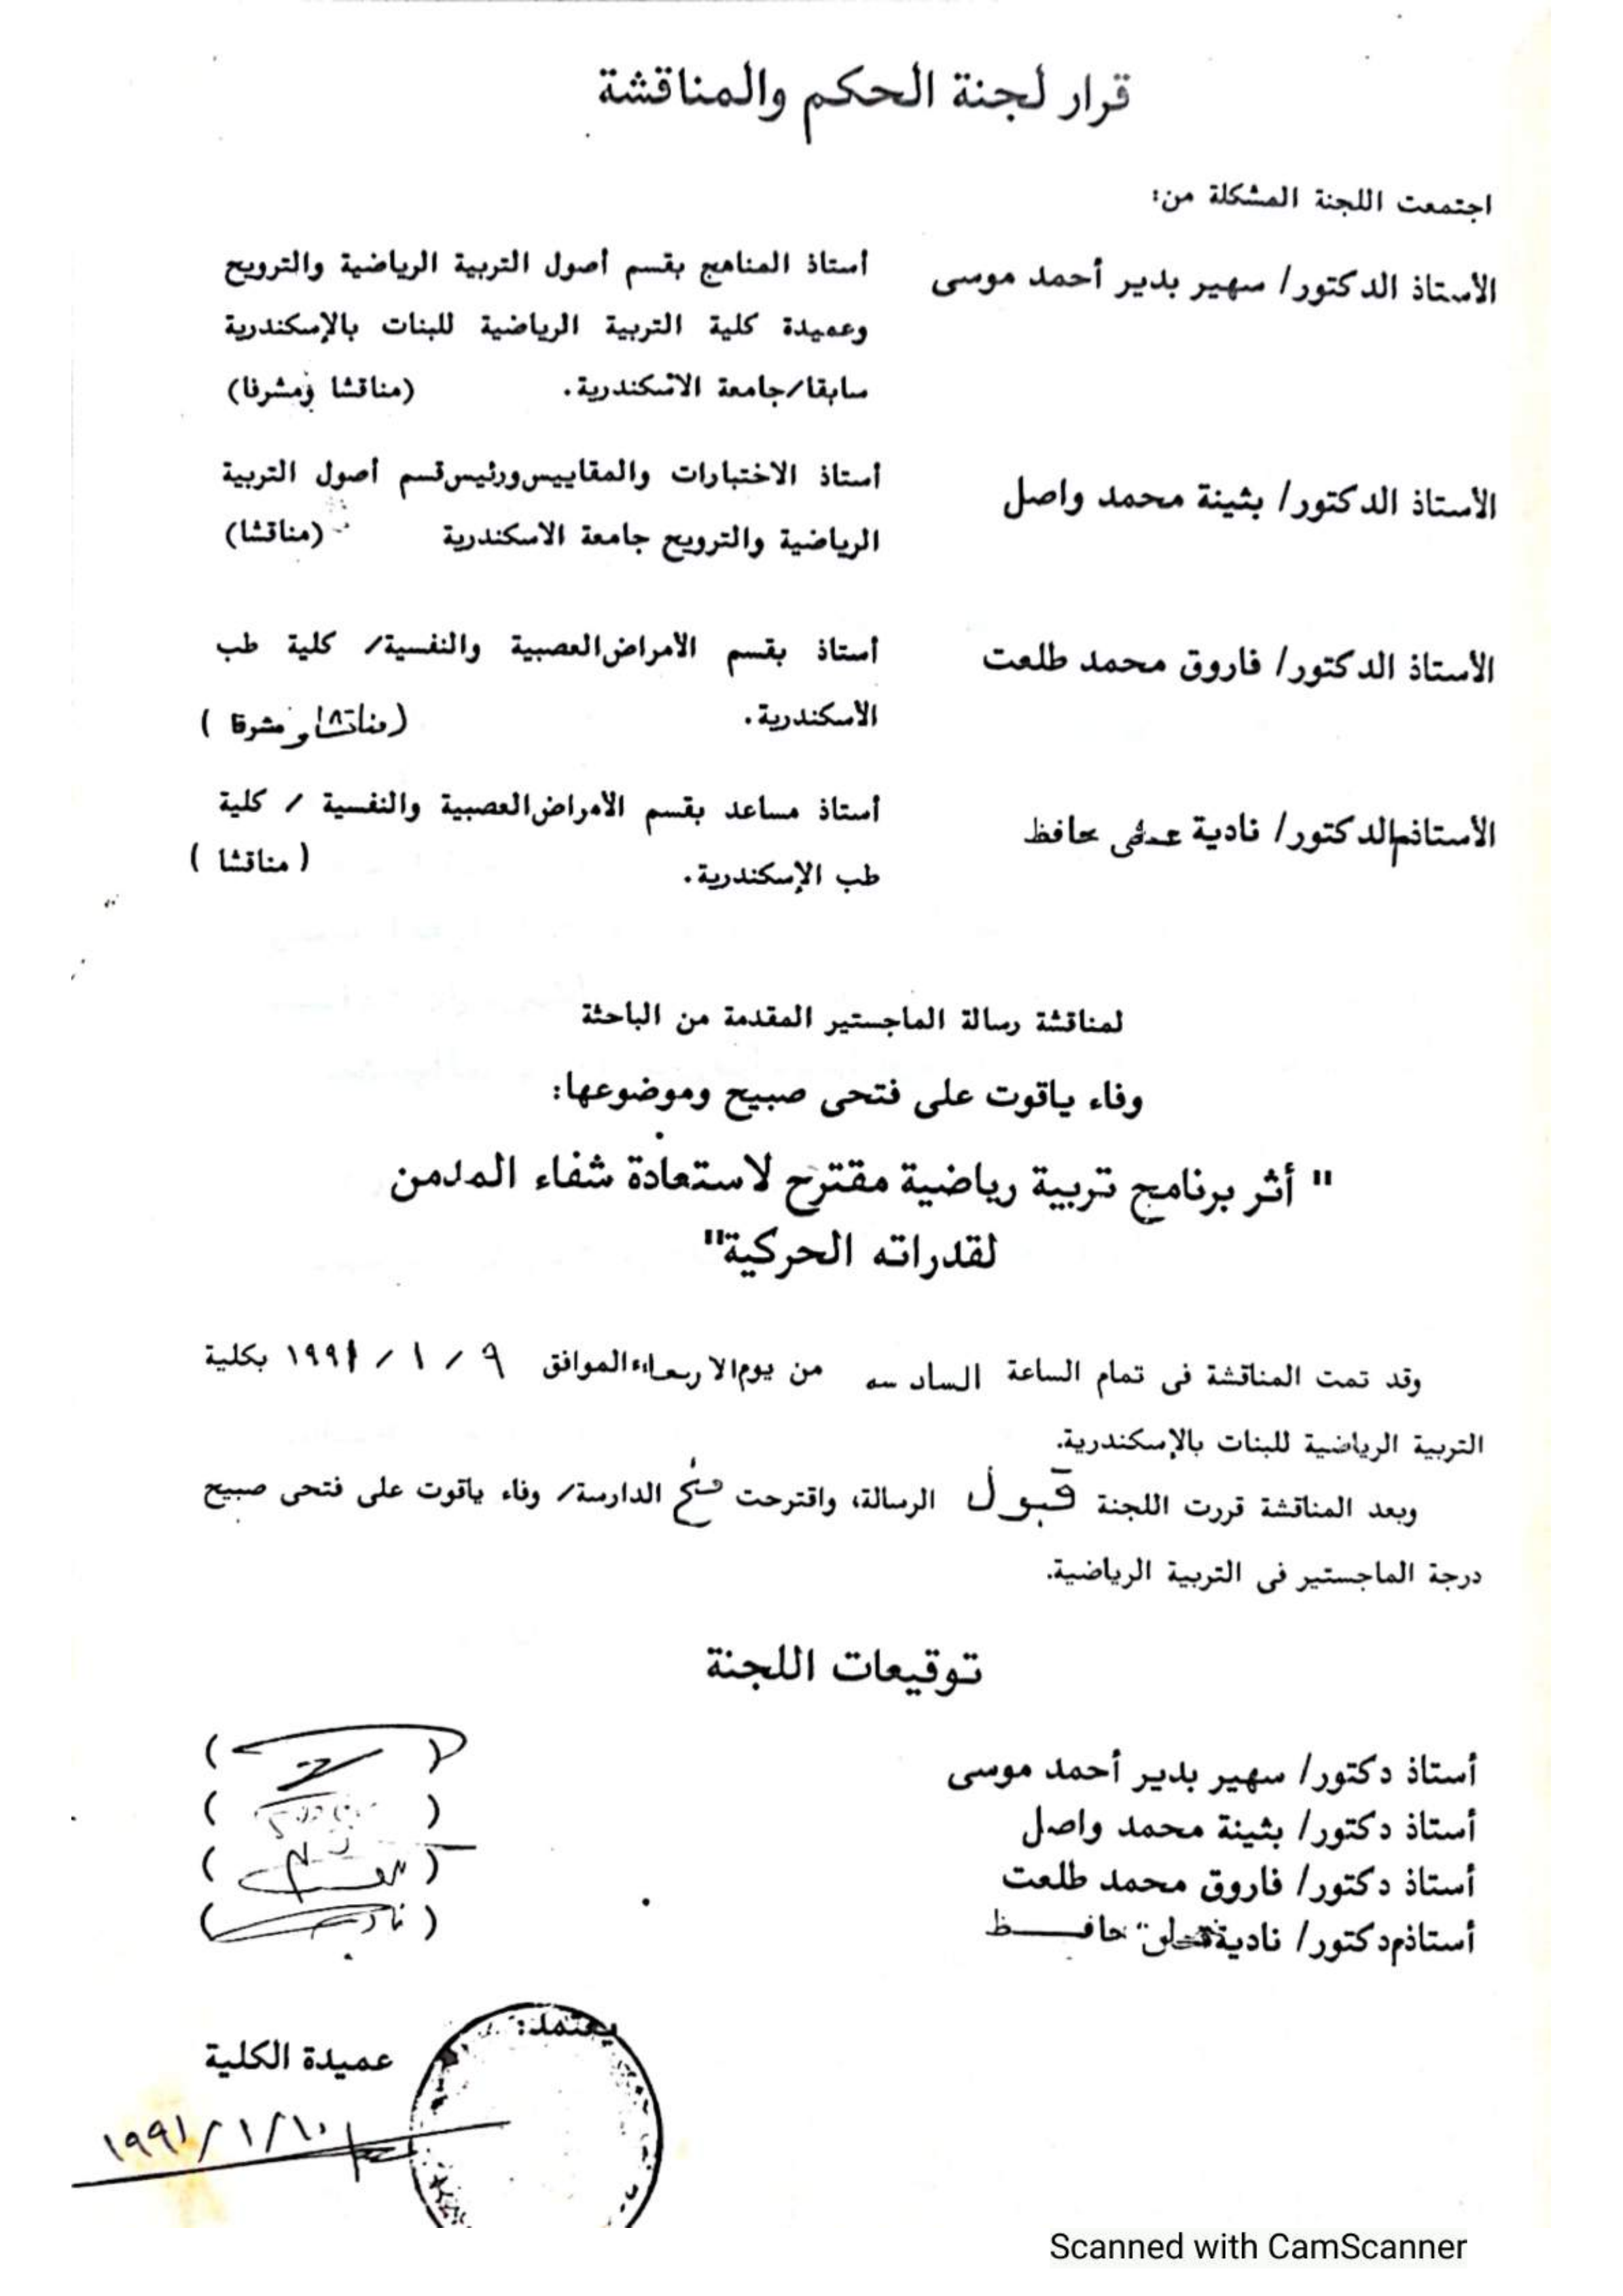 قرار لجنة الحكم والمناقشة
اجتمعت اللجنة المشكلة من:
الأستاذ الدكتور/ سهير بدير أحمد موسى
أستاذ المناهج بقسم أصول التربية الرياضية والترويح
وعميدة كلية التربية الرياضية للبنات بالإسكندرية
سابقا/جامعة الاسكندرية. (مناقشا ومشرفا)
الأستاذ الدكتور/ بثينة محمد واصل
أستاذ الاختبارات والمقاييس ورئيس قسم أصول التربية
الرياضية والترويح جامعة الاسكندرية (مناقشا)
الأستاذ الدكتور/ فاروق محمد طلعت
أستاذ بقسم الأمراض العصبية والنفسية/ كلية طب
الأسكندرية. (مناقشا و مشرفا)
الأستاذم الدكتور/ نادية حافظ
أستاذ مساعد بقسم الأمراض العصبية والنفسية / كلية
طب الإسكندرية. (مناقشا)
لمناقشة رسالة الماجستير المقدمة من الباحثة
وفاء ياقوت على فتحى صبيح وموضوعها:
" أثر برنامج تربية رياضية مقترح لاستعادة شفاء المدمن
لقدراته الحركية"
وقد تمت المناقشة فى تمام الساعة السادسه من يوم الاربعاء الموافق ٩ / ١ / ١٩٩١ بكلية
التربية الرياضية للبنات بالإسكندرية.
وبعد المناقشة قررت اللجنة قبول الرسالة، واقترحت منح الدارسة/ وفاء ياقوت على فتحى صبيح
درجة الماجستير فى التربية الرياضية.
توقيعات اللجنة
أستاذ دكتور/ سهير بدير أحمد موسى ( )
أستاذ دكتور/ بثينة محمد واصل ( )
أستاذ دكتور/ فاروق محمد طلعت ( )
أستاذم دكتور/ نادية حافظ ( )
يعتمد:
عميدة الكلية
١٩٩١/١/١٠
Scanned with CamScanner